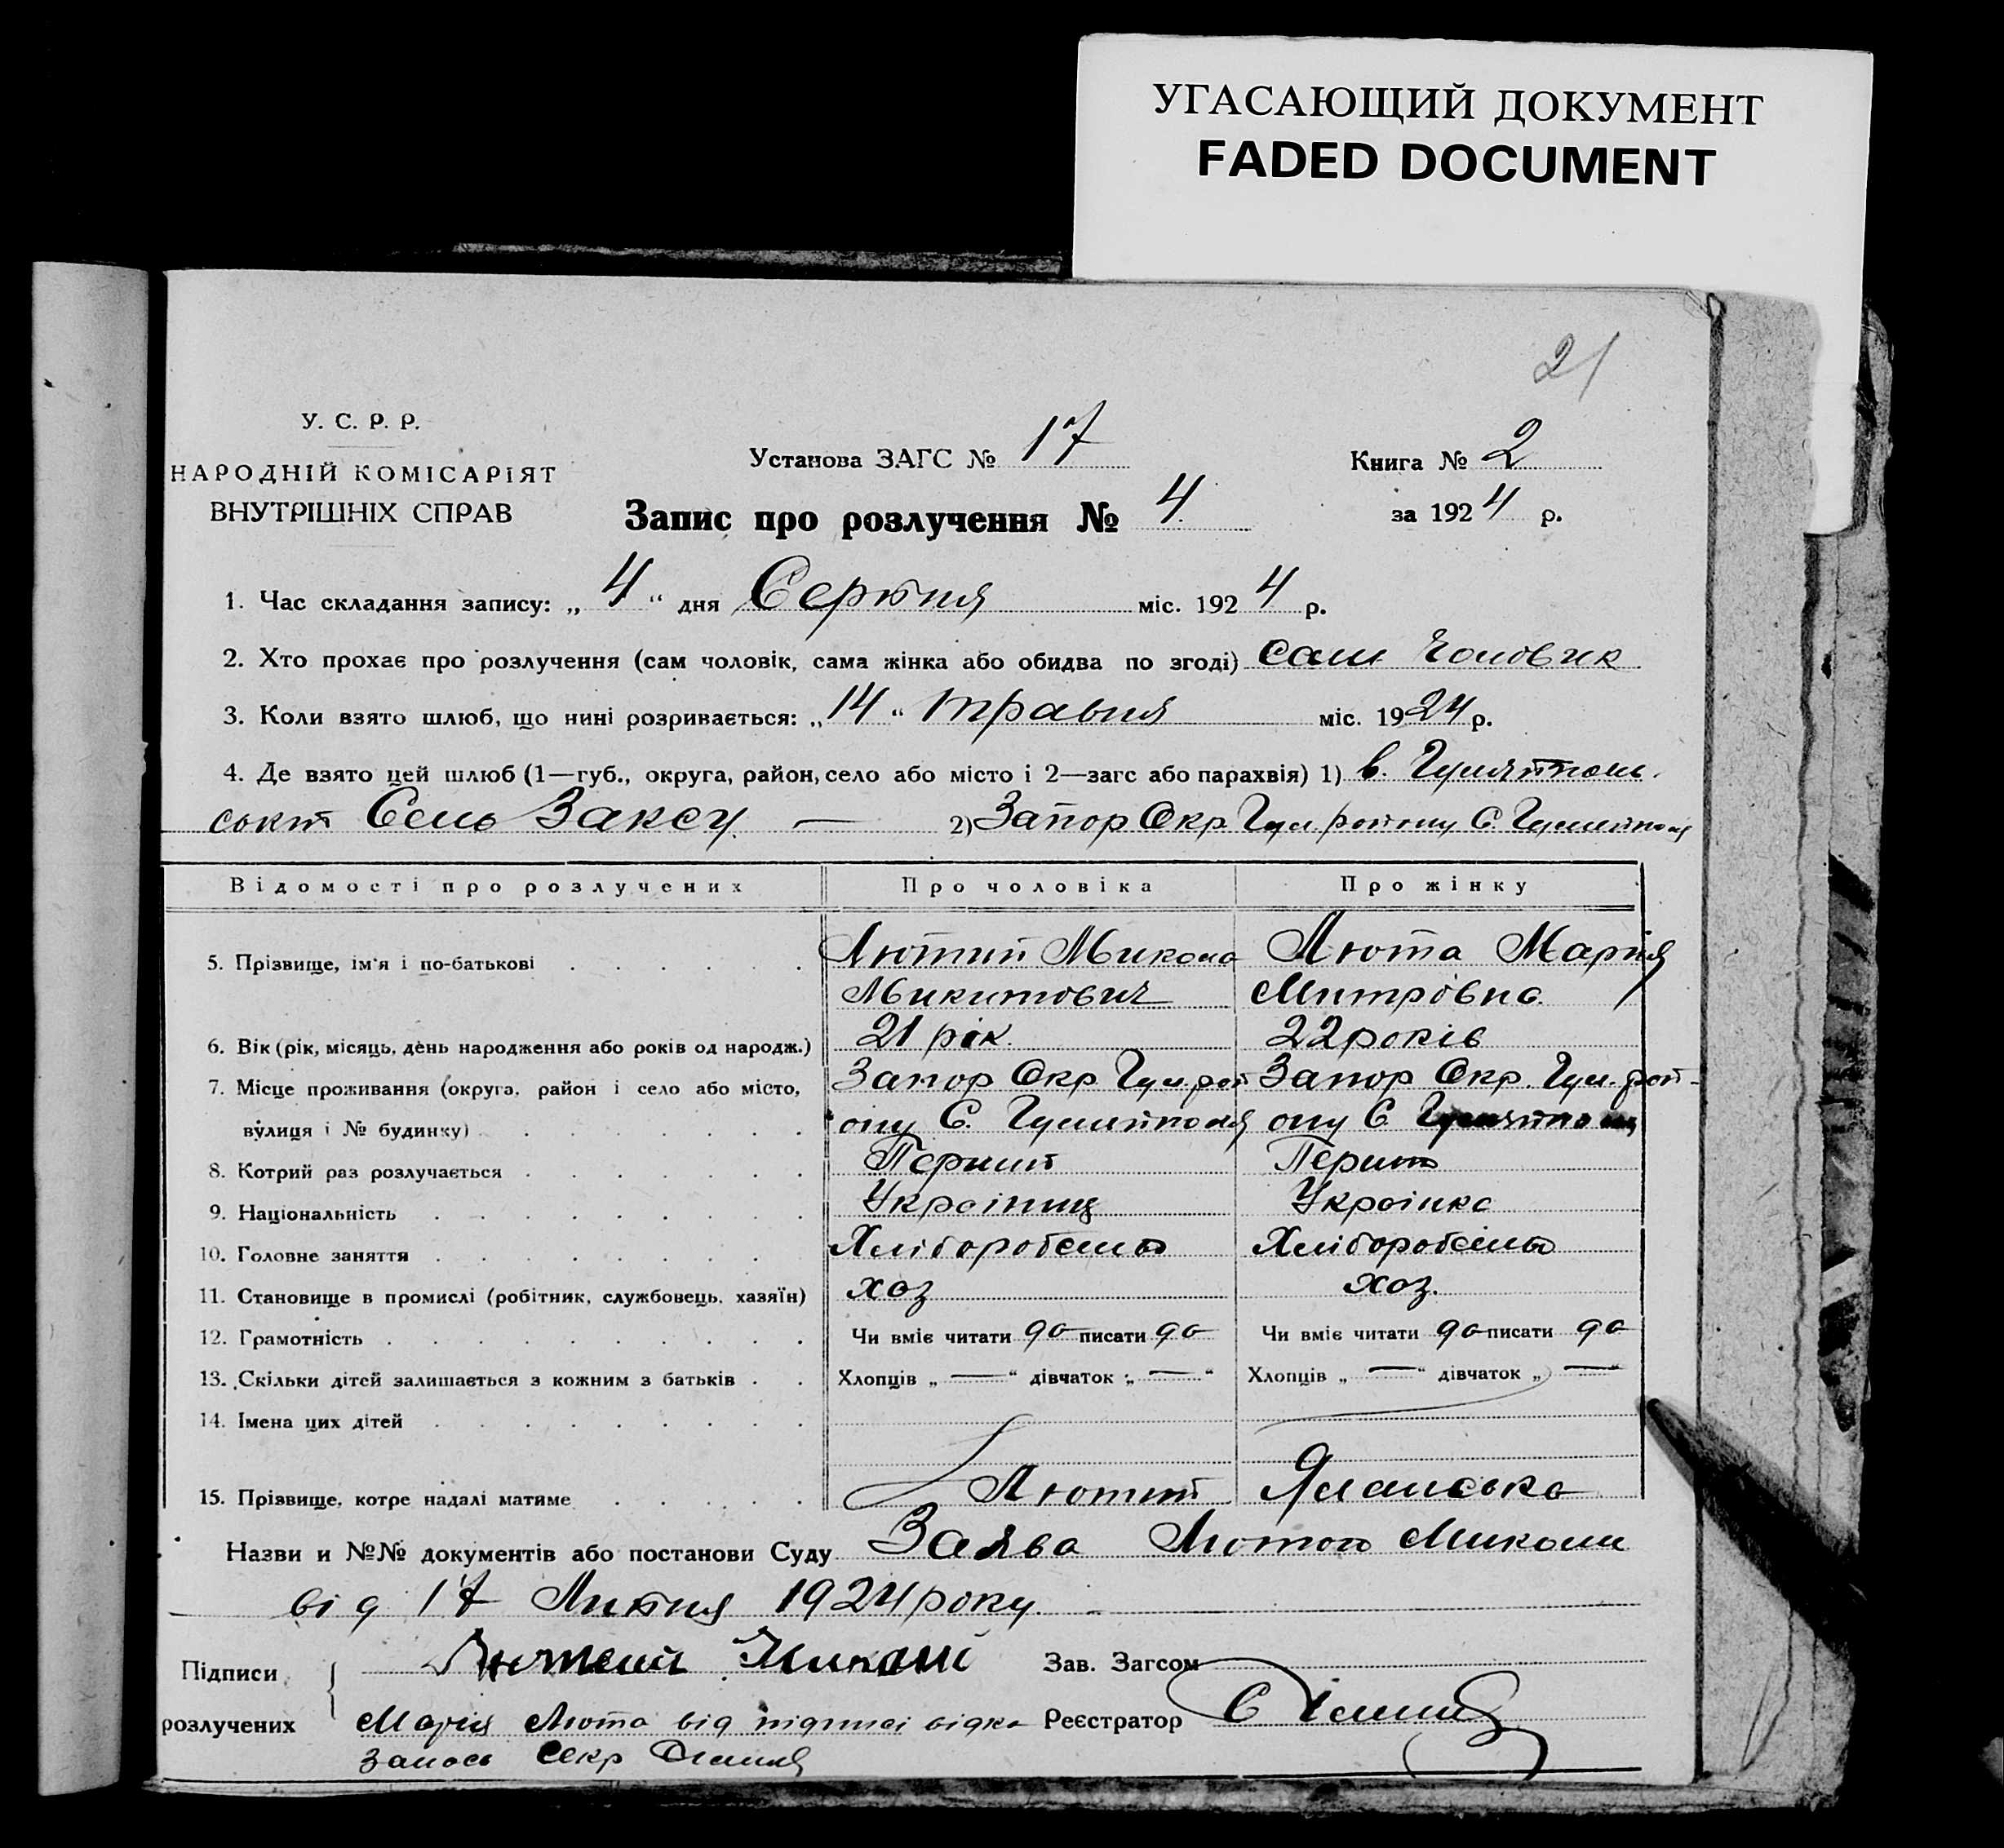 УГАСАЮЩИЙ ДОКУМЕНТ
FADED DOCUMENT
21
У. С. Р. Р.
НАРОДНІЙ КОМІСАРІЯТ
ВНУТРІШНІХ СПРАВ
Установа ЗАГС № 17
Книга № 2
Запис про розлучення № 4
за 1924 р.
1. Час складання запису: „4“ дня Серпня міс. 1924 р.
2. Хто прохає про розлучення (сам чоловік, сама жінка або обидва по згоді) сам Чоловик
3. Коли взято шлюб, що нині розривається: „14“ травня міс. 1924 р.
4. Де взято цей шлюб (1—губ., округа, район, село або місто і 2—загс або парахвія) 1) в. Гуляйполь-
ськім Сель Заксу. — 2) Запор Окр. Гул. району С. Гуляйполя
Відомості про розлучених Про чоловіка Про жінку
5. Прізвище, ім'я і по-батькові Лютий Микола Люта Марія
Микитович Митрівна
6. Вік (рік, місяць, день народження або років од народж.) 21 рік. 22 років
7. Місце проживання (округа, район і село або місто, Запор Окр. Гул. рай Запор Окр. Гул. рай-
вулиця і № будинку) ону С. Гуляйполя ону С. Гуляйполя
8. Котрий раз розлучається Перший Перший
9. Національність Українец Українка
10. Головне заняття Хліборобство Хліборобство
11. Становище в промислі (робітник, службовець, хазяїн) хоз хоз.
12. Грамотність Чи вміє читати да писати да Чи вміє читати да писати да
13. Скільки дітей залишається з кожним з батьків Хлопців „—“ дівчаток „—“ Хлопців „—“ дівчаток „—“
14. Імена цих дітей
15. Прізвище, котре надалі матиме Лютий Яланська
Назви и №№ документів або постанови Суду Заява Лютого Миколи
від 17 Липня 1924 року.
Підписи Лютий Зав. Загсом
розлучених Марія Люта від підписі відка- Реєстратор
залась Секр